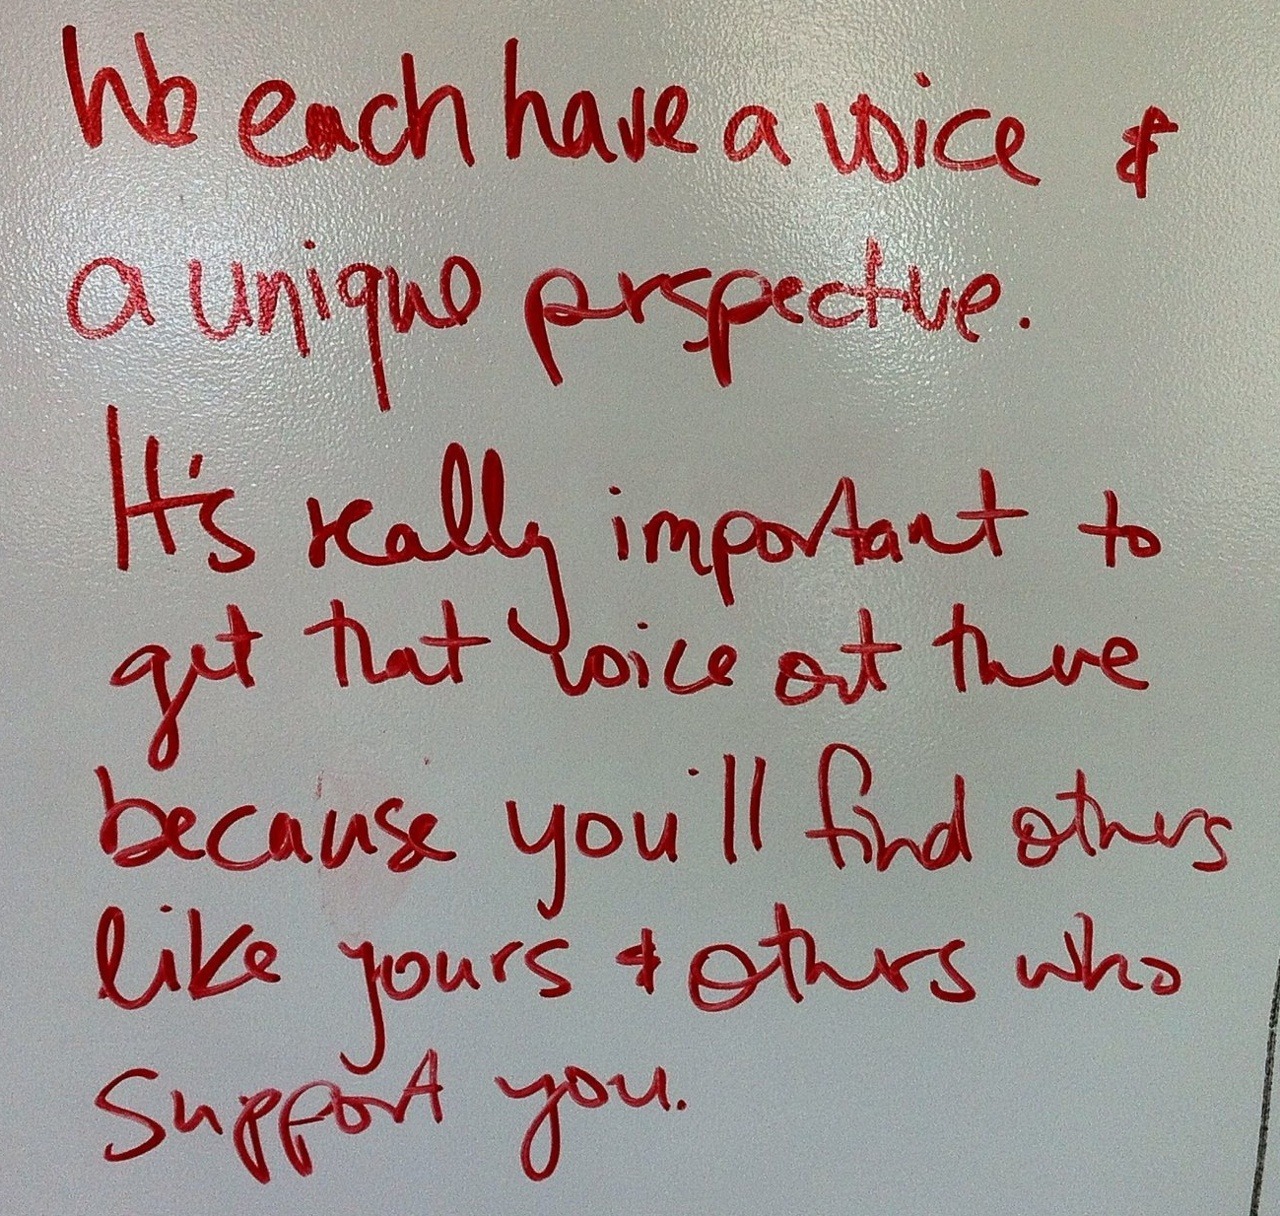 We each have a voice &
a unique perspective.
It's really important to
get that voice out there
because you'll find others
like yours & others who
support you.